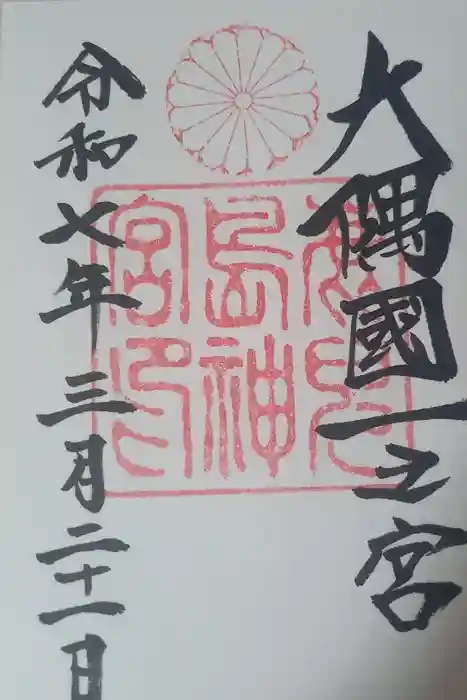 大隅國一之宮
鹿兒
島神
宮印
令和七年三月二十一日